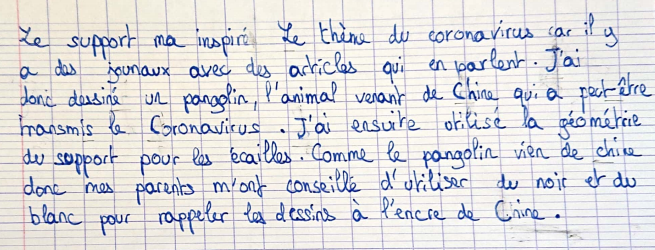 Le support ma inspiré Le thème du coronavirus car il y
a des jounaux avec des articles qui en parlent. J'ai
donc dessiné un pangolin, l'animal venant de Chine qui a peut-être
transmis le Coronavirus. J'ai ensuite utilisé la géométrie
du support pour les écailles. Comme le pangolin vien de chine
donc mes parents m'ont conseillé d'utiliser du noir et du
blanc pour rappeler les dessins à l'encre de Chine.